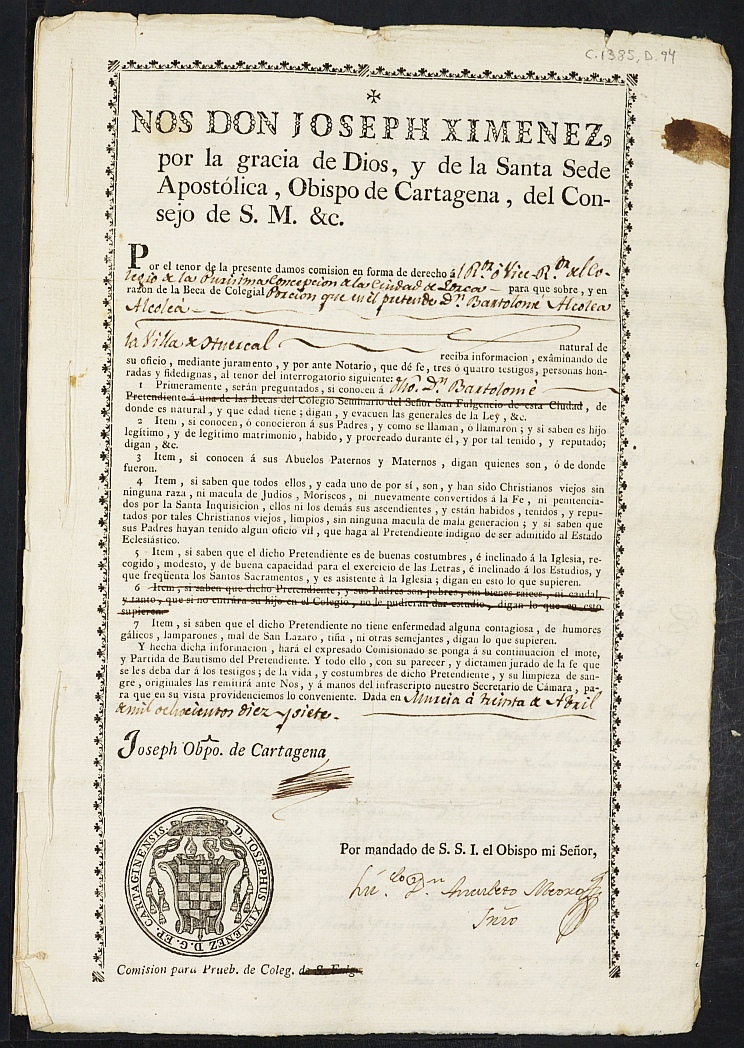 C.1385, D.94
NOS DON JOSEPH XIMENEZ,
por la gracia de Dios, y de la Santa Sede
Apostólica, Obispo de Cartagena, del Con-
sejo de S. M. &c.
Por el tenor de la presente damos comision en forma de derecho ál R.or ó Vice-R.or del Co-
legio de la Purisima Concepcion de la Ciudad de Lorca para que sobre, y en
razon de la Beca de Colegial Porcion que en él pretende D.n Bartolomé Alcolea
Alcolea
natural de
la Villa de Huercal
reciba informacion, examinando de
su oficio, mediante juramento, y por ante Notario, que dé fe, tres ó quatro testigos, personas hon-
radas y fidedignas, al tenor del interrogatorio siguiente:
1 Primeramente, serán preguntados, si conocen á dho. D.n Bartolomé
Pretendiente á una de las Becas del Colegio Seminario del Señor San Fulgencio de esta Ciudad, de
donde es natural, y que edad tiene; digan, y evacuen las generales de la Ley, &c.
2 Item, si conocen, ó conocieron á sus Padres, y como se llaman, ó llamaron; y si saben es hijo
legítimo, y de legítimo matrimonio, habido, y procreado durante él, y por tal tenido, y reputado;
digan, &c.
3 Item, si conocen á sus Abuelos Paternos y Maternos, digan quienes son, ó de donde
fueron.
4 Item, si saben que todos ellos, y cada uno de por sí, son, y han sido Christianos viejos sin
ninguna raza, ni macula de Judios, Moriscos, ni nuevamente convertidos á la Fe, ni penitencia-
dos por la Santa Inquisicion, ellos ni los demás sus ascendientes, y están habidos, tenidos, y repu-
tados por tales Christianos viejos, limpios, sin ninguna macula de mala generacion; y si saben que
sus Padres hayan tenido algun oficio vil, que haga al Pretendiente indigno de ser admitido al Estado
Eclesiástico.
5 Item, si saben que el dicho Pretendiente es de buenas costumbres, é inclinado á la Iglesia, re-
cogido, modesto, y de buena capacidad para el exercicio de las Letras, é inclinado á los Estudios, y
que freqüenta los Santos Sacramentos, y es asistente á la Iglesia; digan en esto lo que supieren.
6 Item, si saben que dicho Pretendiente, y sus Padres son pobres, sin bienes raices, ni caudal,
y tanto, que si no entrára su hijo en el Colegio, no le pudieran dar estudio, digan lo que en esto
supieren.
7 Item, si saben que el dicho Pretendiente no tiene enfermedad alguna contagiosa, de humores
gálicos, lamparones, mal de San Lazaro, tiña, ni otras semejantes, digan lo que supieren.
Y hecha dicha informacion, hará el expresado Comisionado se ponga á su continuacion el mote,
y Partida de Bautismo del Pretendiente. Y todo ello, con su parecer, y dictamen jurado de la fe que
se les deba dar á los testigos; de la vida, y costumbres de dicho Pretendiente, y su limpieza de san-
gre, originales las remitirá ante Nos, y á manos del infrascripto nuestro Secretario de Cámara, pa-
ra que en su vista providenciemos lo conveniente. Dada en Murcia á treinta de Abril
de mil ochocientos diez y siete.
Joseph Obpo. de Cartagena
Por mandado de S. S. I. el Obispo mi Señor,
D. JOSEPHUS XIMENEZ D. G. EP. CARTAGINENSIS.
Srio
Comision para Prueb. de Coleg. de S. Fulg.